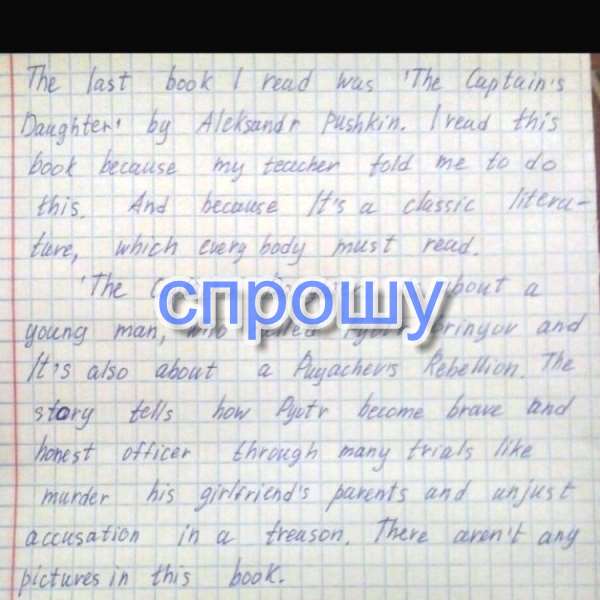 The last book I read was 'The Captain's
Daughter' by Aleksandr Pushkin. I read this
book because my teacher told me to do
this. And because It's a classic litera-
ture, which every body must read.
'The about a
спрошу
young man, who and
It's also about a Pugachev's Rebellion. The
story tells how Pyotr become brave and
honest officer through many trials like
murder his girlfriend's parents and unjust
accusation in a treason. There aren't any
pictures in this book.